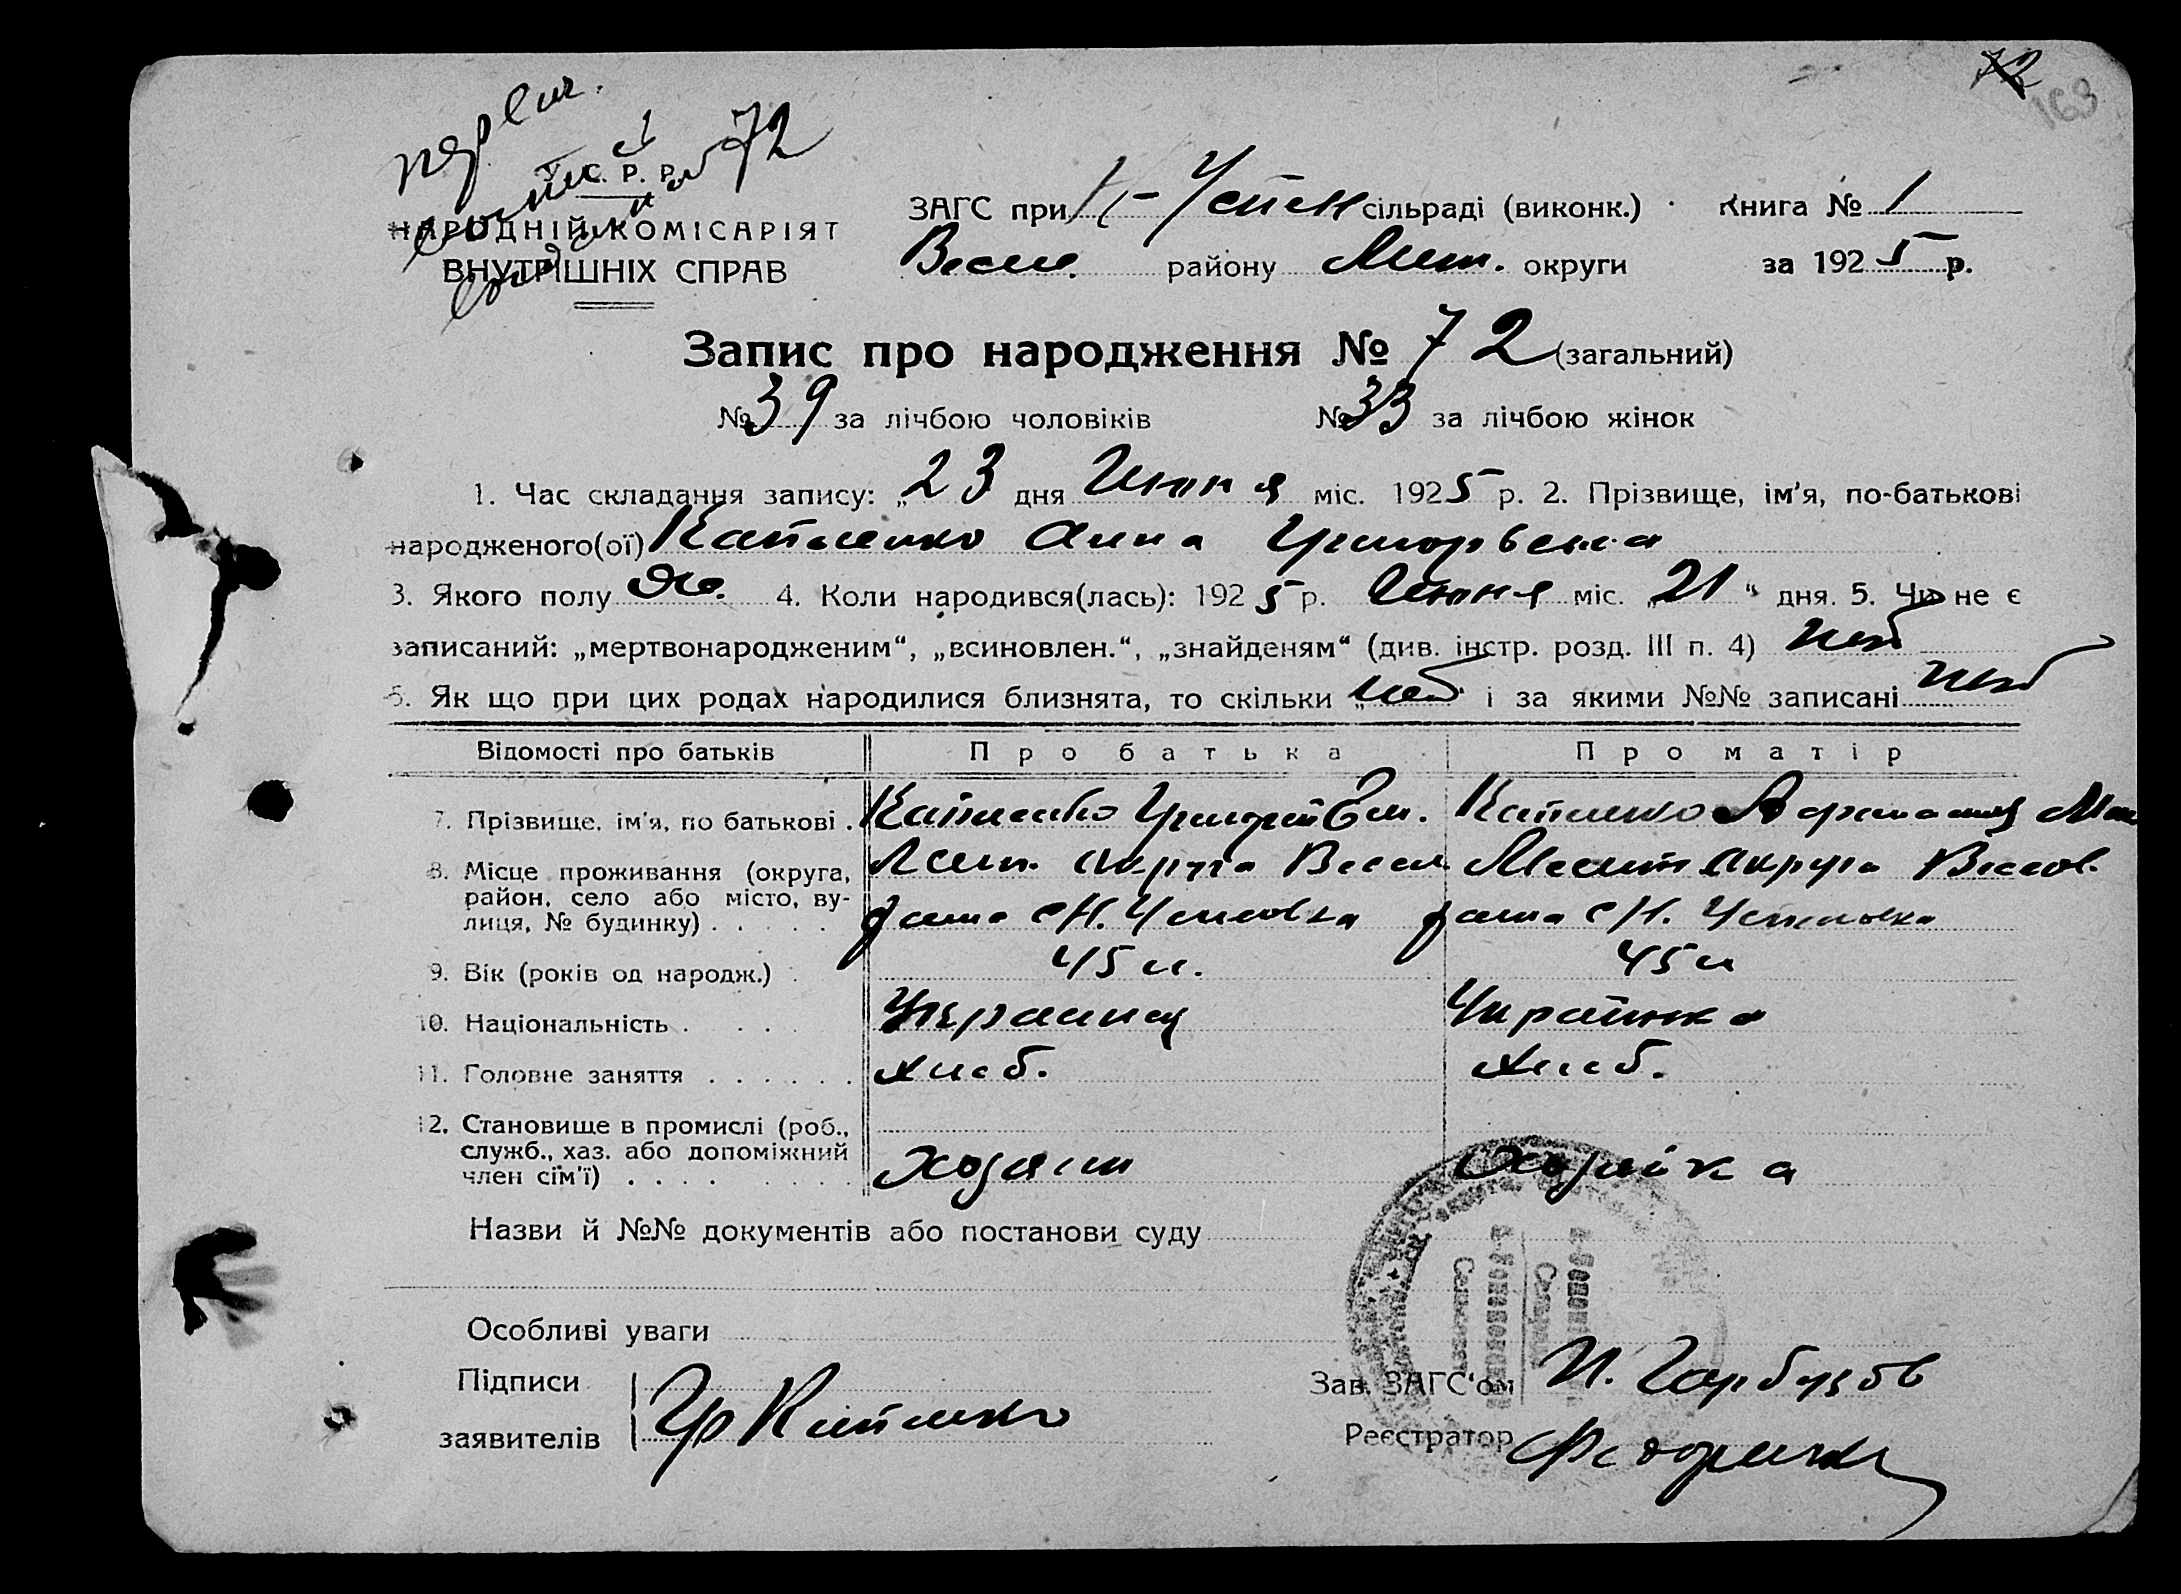 72
163
72
У. С. Р. Р.
НАРОДНІЙ КОМІСАРІЯТ
ВНУТРІШНІХ СПРАВ
ЗАГС при сільраді (виконк.) Книга № 1
Весел. району Мет. округи за 1925 р.
Запис про народження № 72 (загальний)
№ 39 за лічбою чоловіків № 33 за лічбою жінок
1. Час складання запису: „23 дня Июня міс. 1925 р. 2. Прізвище, ім'я, по-батькові
народженого(ої) Анна Григорьевна
3. Якого полу Же. 4. Коли народився(лась): 1925 р. Июня міс. „21“ дня. 5. Чи не є
записаний: „мертвонародженим“, „всиновлен.“, „знайденям“ (див. інстр. розд. III п. 4) нет
6. Як що при цих родах народилися близнята, то скільки „нет і за якими №№ записані нет
Відомості про батьків Про батька Про матір
7. Прізвище, ім'я, по батькові .
8. Місце проживання (округа, округа Весел округа Весел.
район, село або місто, ву-
лиця, № будинку) . . . . .
9. Вік (років од народж.) . 45 л. 45 л
10. Національність . . . . Украинец Украинка
11. Головне заняття . . . . . . хлеб. хлеб.
12. Становище в промислі (роб.,
служб., хаз. або допоміжний Хозяин Хозяйка
член сім'ї) . . . . . . . .
Назви й №№ документів або постанови суду
Особливі уваги
Підписи
заявителів Гр
Зав. ЗАГС'ом И. Гарбузов
Реєстратор